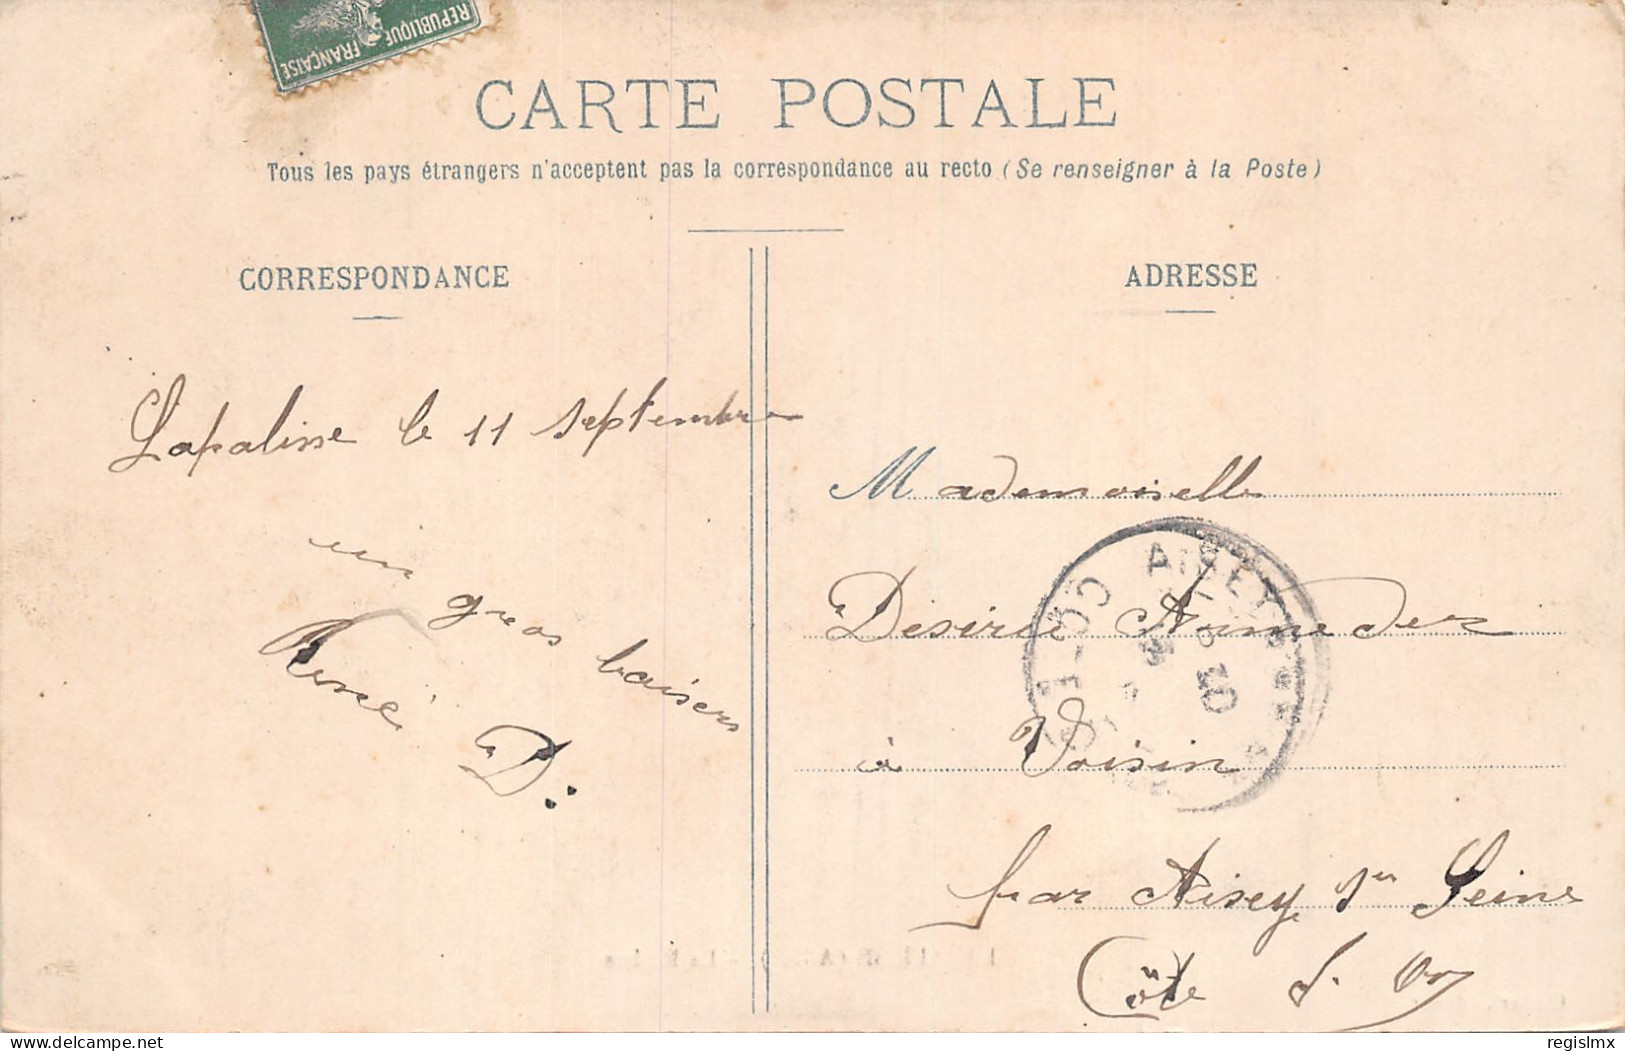 REPUBLIQUE FRANÇAISE
CARTE POSTALE
Tous les pays étrangers n'acceptent pas la correspondance au recto (Se renseigner à la Poste)
CORRESPONDANCE
Lapalisse le 11 Septembre
un gros baisers
René D.
ADRESSE
Mademoiselle
Desirée Amedez
à Voisin
par Aisey s/ Seine
Côte d. Or
AISEY
CÔTE-D
regislmx